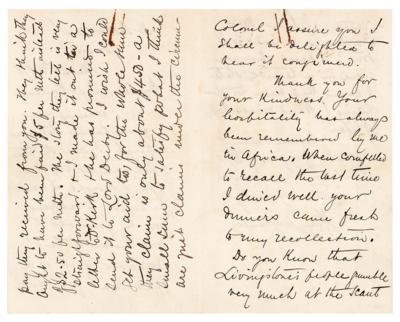 Colonel I assure you I
shall be delighted to
hear it confirmed.
Thank you for
your kindness. Your
hospitality has always
been remembered by me
in Africa. When compelled
to recall the last time
I dined well your
dinners came fresh
to my recollection.
Do you know that
Livingstone's people grumble
very much at the scant
pay they received from you. They think they
ought to have been paid $5 per month instead
of $2.50 per month. The story they tell is very
straightforward & I made it out in a
letter to Kirk & he has promised to
send it to Lord Derby. I wish I could
get your aid too for the whole sum
they claim is only about $400 - a
small sum to satisfy what I think
are just claims under the circum-